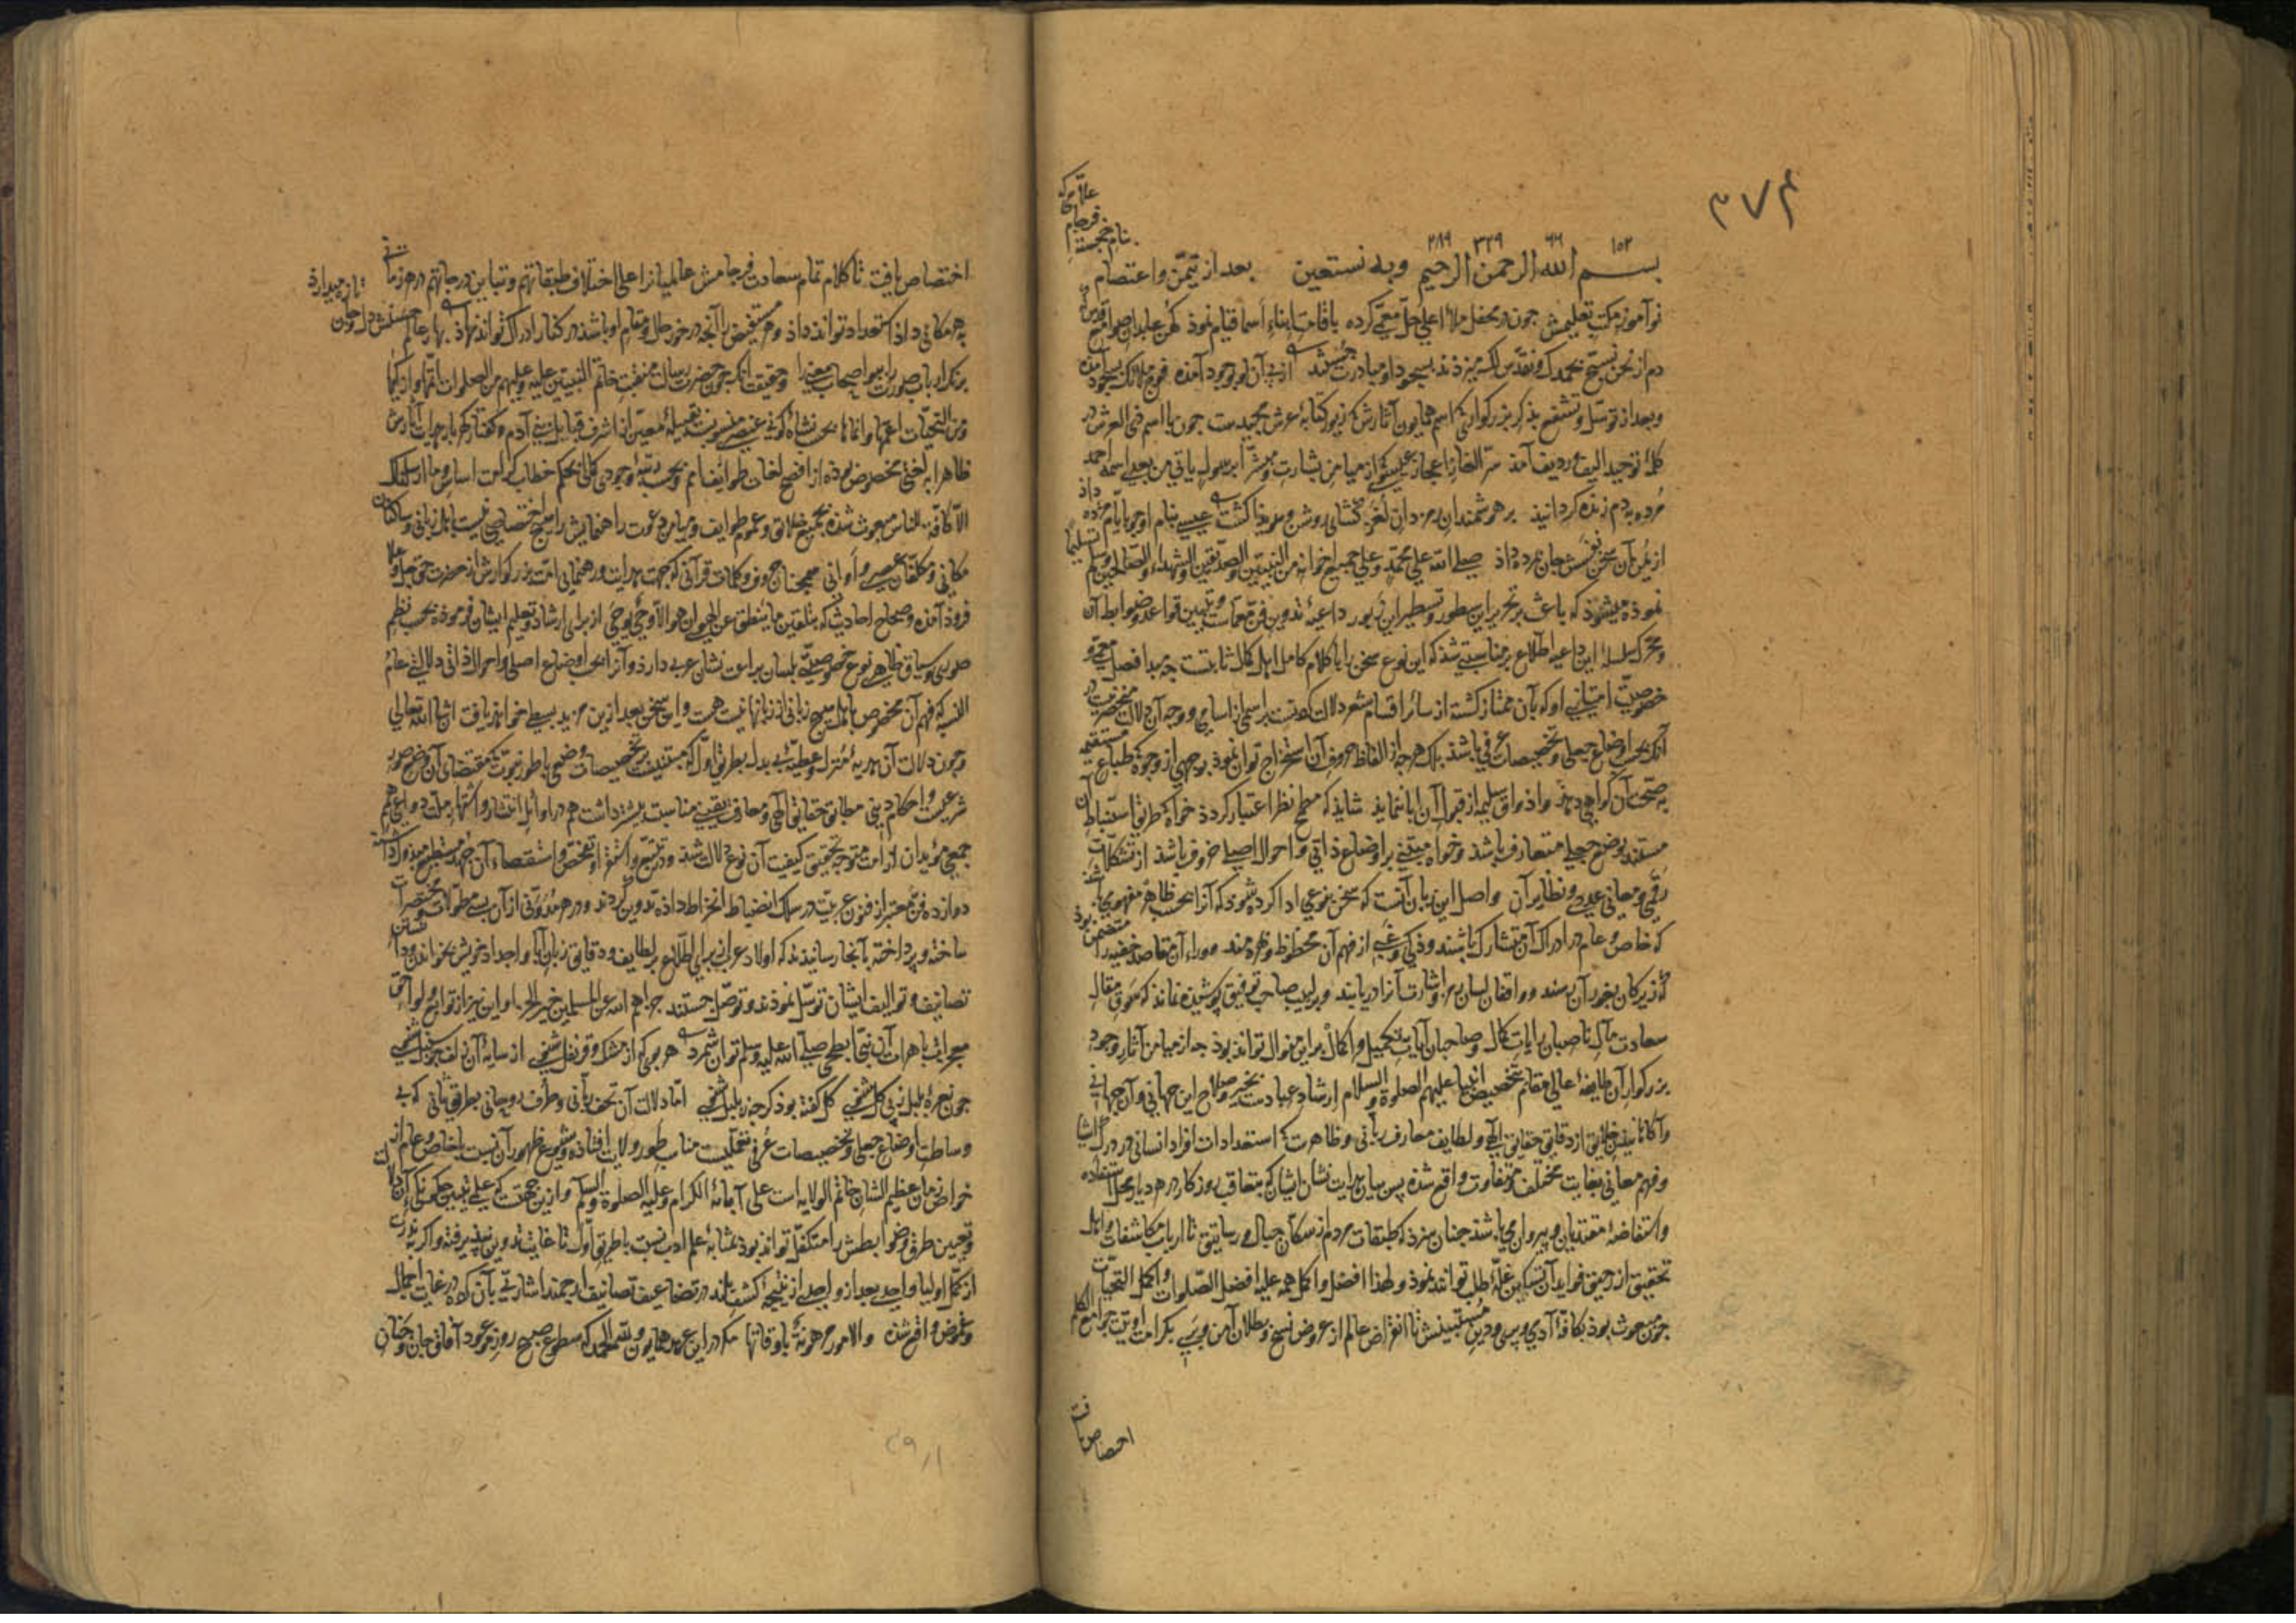 ۳۷۴
۱۵۲ ۶۶ ۳۲۹ ۲۸۹
بسم الله الرحمن الرحیم وبه نستعین بعد از تیمّن واعتصام
بنام خجسته فرجام علّامی که
نوآموز مکتب تعلیمش چون در محفل ملاء اعلی حلّ معمّی کرده باقامت ابناء اسما قیام نموذ کهن عابدان صوامع قدس که
دم از نحن نسبّح بحمدک ونقدّس لک میزذند بسجود او مبادرت جستند از پی آن او بوجود آمذه فوج ملائک بسجود آمذه
وبعد از توسّل وتشفع بذکر بزرکواری که اسم همایون آثارش که زیور کتابهٔ عرش مجیدست چون با اسم ذی العرش در
کلمهٔ توحید الیف وردیف آمذ سرّ الغاز اعجاز عیسوی از میامن بشارت ومبشّرا برسول یاتی من بعدی اسمه احمد
مرده بدم زنده کردانیذ بر هوشمندان رمزدان لغز کشای روشن وهویذا کشت عیسی بنام او چو بایّام مژده داذ
از یمن آن سخن نفسش جان بمرده داذ صلی الله علی محمّد وعلی جمیع اخوانه من النبیین والصدّیقین والشهداء والصّالحین وسلّم تسلیما
نموذه میشوذ که باعث بر تحریر این سطور وتسطیر این زبور داعیهٔ تدوین فنّ معمّاست وتبیین قواعد وضوابط آن
ومحرّک سلسلهٔ این داعیه اطلاع بر مناسبتی شد که این نوع سخن را با کلام کامل اهل کمال ثابتست چه مبدا فصل معمّی و
خصوصیّت امتیازی او که بآن ممتاز کشته از سائر اقسام شعر دلالت کردنست بر اسمی از اسامی ووجه آن دلالت منحصر نیست در
آنک بحسب اوضاع جعلی وتخصیصات عرفی باشذ بلک هر چه از الفاظ وحروف آن استخراج توان نموذ بوجهی از وجوه که طباع مستقیمه
بصحّت آن کواهی دهند واذواق سلیمه از قبول آن ابا ننمایذ شایذ که مطمح نظر اعتبار کردذ خواه که طریق استنباط آن
مستند بوضع جعلی متعارف باشذ وخواه مبتنی بر اوضاع ذاتی واحوال اصلی حروف باشذ از تشکّلات
رقمی ومعانی عددی ونظایر آن واصل این زبان آنست که سخن بنوعی ادا کرده شود که آنرا بحسب ظاهر مفهومی باشد
که خاص وعام در ادراک آن متشارک باشند وذکی وغبی از فهم آن محظوظ وبهره‌مند ووراء آن مقاصد خفیه را متضمن بوذ
که زیرکان بغور آن رسند وواقفان لسان رمز واشارت آنرا دریابند وبر لبیب صاحب توفیق پوشیده نماند که سَوق مقال
سعادت مآل ناصبان رایات کمال وصاحبان آیات تکمیل واکمال بر این منوال تواند بوذ چه از میامن آثار وجود
بزرکوار آن طایفهٔ عالی مقام تخصیص انبیا علیهم الصلوة والسلام ارشاد عبادست بخیر وصلاح این جهانی وآن جهانی
وآکاهانیدن خلایق از دقایق حقایق الهی ولطایف معارف ربّانی وظاهرست که استعدادات افراد انسانی در درک اشیا
وفهم معانی بغایت مختلف ومتفاوت واقع شده پس بیان هدایت نشان ایشان که بتعاقب روزکار در هر دیار محلّ استفاده
واستفاضهٔ مقتدیان وپیروان می‌باشد چنان سزد که طبقات مردم از سکان جبال ورساتیق تا ارباب مکاشفات واهل
تحقیق از رحیق فواید آن تسکین غلّهٔ طلب توانند نموذ ولهذا افضل واکمل همه علیه افضل الصّلوات واکمل التحیّات
چون مبعوث بوذ بکافّهٔ آدمی وپری ودین مستبینش تا انقراض عالم از عروض نسخ وبطلان آمن وبری بکرامت اوتیت جوامع الکلم
اختصاص یافت
اختصاص یافت تا کلام تمام سعادت فرجامش عالمیانرا علی اختلاف طبقاتهم وتباین درجاتهم در هر زمانی
به هر مکانی داذ استعداد تواند داذ وهر مستفیض را آنچه در خور حال ومقام او باشد در کنار ادراک تواند نهاذ بهار عالم حسنش دل وجان تازه میدارذ
برنک ارباب صورت را ببو اصحاب معنی را وحقیقت آنک چون حضرت رسالت منقبت خاتم النبیین علیه وعلیهم من الصلوات اتمّها وازکیها
ومن التحیّات اعمّها وانماها بحسب نشاهٔ کونی عنصری منسوبست بقبیلهٔ معیّن از اشرف قبایل بنی آدم
ظاهرا بلغتی مخصوص بوذه از افصح لغات طوایف امم وبحسب رتبهٔ وجودی کلی بحکم خطاب کرامت اساس وما ارسلناک
الّا کافّة للناس مبعوث شده بجمیع خلایق وعموم طوایف
مکانی ومکلّفان عصری واوانی همچنان حروف وکلمات قرآنی که جهت هدایت ورهنمائی امّت بزرکوارش از حضرت حق جل وعلا
فروذ آمذه وصحاح احادیث که بتلقین ما ینطق عن الهوی ان هو الّا وحی یوحی از برای ارشاد وتعلیم ایشان فرموذه بحسب نظم
صوری وسیاق ظاهری نوع خصوصیّتی بلسان براعت نشان عربی دارذ وآنرا بحسب اوضاع اصلی واحوال ذاتی دلالتی عامّ
النسبه که فهم آن مخصوص باهل هیچ زبانی از زبانها نیست هست واین سخن بعد ازین مزید بسطی خواهد یافت ان شا الله تعالی
وچون دلالت آن هدیهٔ مُنزل وعطیّهٔ بی بدل بطریق اوّل که مبتنیست بر تخصیصات وضعی با طور نبوّت که مقتضای آن وضع صور
شرعیست واحکام دینی مطابق حقایق الهی ومعارف یقینی مناسبت بیشتر داشت هم در اوائل انتشار واشتهار ملّت دواعی همم
جمعی مؤیدان از امّت متوجه تحقیق کیفیت آن نوع دلالت شد ودر تتبّع واستقرا وتفحّص واستقصاء آن جهد مستطیع مبذول داشته
دوازده فنّ معتبر از فنون عربیّت در سلک انضباط انخراط داذه تدوین کردند ودر هر مُدَوّنی از آن بسی مطوّلات ومختصرات
ساخته وپرداخته بآنجا رسانیذند که اولاد عرب برای اطّلاع بر لطایف ودقایق زبان آبا واجداد خویش بخواندن ودانستن
تصانیف وتوالیف ایشان توسّل نموذند وتوصّل جستند جزاهم الله عن المسلمین خیر الجزا واین نیز از توابع ولواحق
معجزات باهرات آن نبیّ ابطحی صلی الله علیه وسلم توان شمرد هر بوی که از مشک وقرنفل شنوی از سایهٔ آن زلف چو سنبل شنوی
چون نغمهٔ بلبل ز پی کل شنوی کل کفته بوذ کرچه ز بلبل شنوی امّا دلالت آن تحف ربّانی وطُرَف روحانی بطریق ثانی که بی
وساطت اوضاع جعلی وتخصیصات عُرفی متحقّقست مناسب طور ولایت افتاده وشیوع ظهور آن نسبت با خاص وعام از
خواص زمان عظیم الشان خاتم الولایه است علی آبائه الکرام وعلیه الصلوة والسلام وازین جهت
وتعیین طرق وضوابطش را متکفّل تواند بوذ بمثابهٔ علم ادب نسبت با طریق اوّل تا غایت تدوین نپذیرفته واکر بندرت
از کمّل اولیا واحدی بعد از واحدی از نتیجهٔ کشف خود در تضاعیف تصانیف ارجمند اشارتی بآن کرده در غایت اجمال
وغموض واقع شذه والامور مرهونة باوقاتها مکر در این عهد همایون ولله الحمد که سطوع صبح روز موعود آفاق جان وجَنان